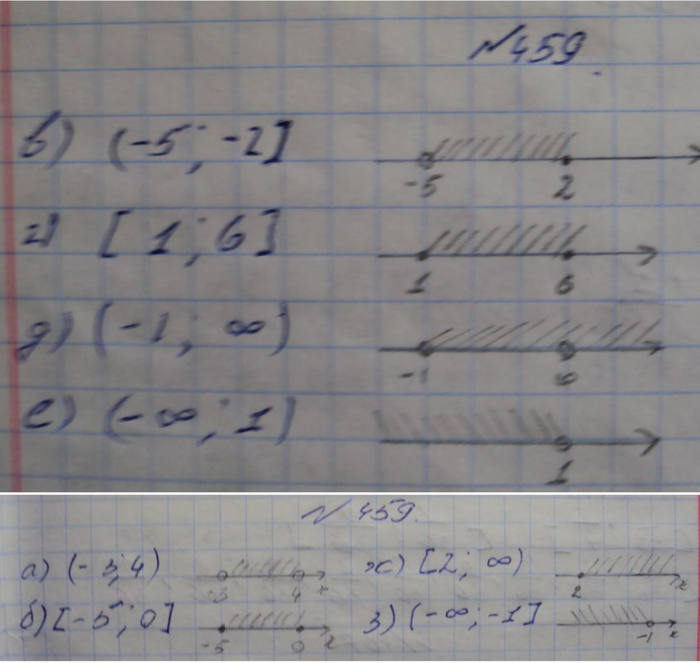 №459.
в) (-5; -2]
-5 2
г) [1; 6]
1 6
д) (-1; ∞)
-1 0
е) (-∞; 1)
1
№459.
а) (-3; 4) ж) [2; ∞)
-3 4 x 2 x
б) [-5; 0] з) (-∞; -1]
-5 0 x -1 x